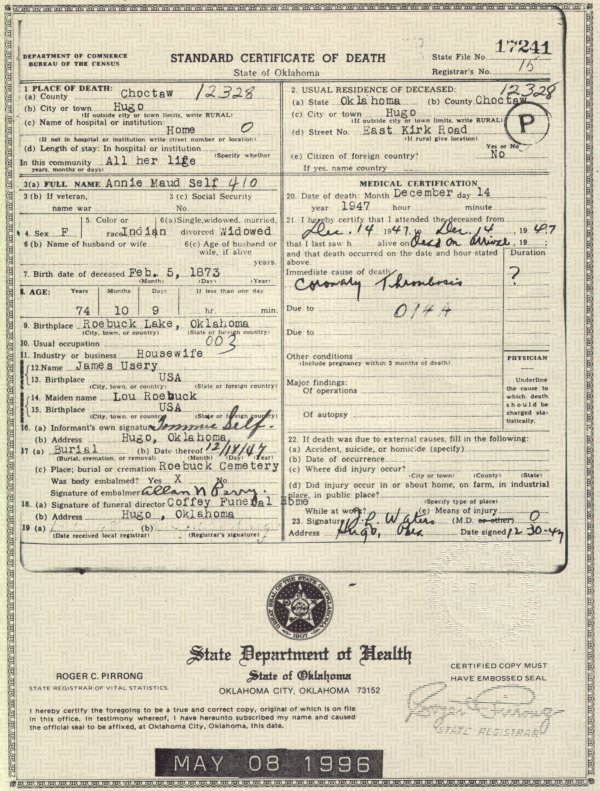 17241
DEPARTMENT OF COMMERCE
BUREAU OF THE CENSUS
STANDARD CERTIFICATE OF DEATH
State of Oklahoma
State File No.
Registrar's No. 15
1 PLACE OF DEATH:
(a) County Choctaw 12328
(b) City or town Hugo
(If outside city or town limits, write RURAL)
(c) Name of hospital or institution:
Home 0
(If not in hospital or institution write street number or location)
(d) Length of stay: In hospital or institution
(Specify whether
In this community All her life
years, months or days)
2. USUAL RESIDENCE OF DECEASED: 12328
(a) State Oklahoma (b) County Choctaw
(c) City or town Hugo
(If outside city or town limits, write RURAL)
(d) Street No. East Kirk Road
(If rural give location)
P
Yes or No
(e) Citizen of foreign country? No
If yes, name country
3(a) FULL NAME Annie Maud Self 410
3 (b) If veteran, 3 (c) Social Security
name war No.
4. Sex F 5. Color or race Indian 6(a)Single, widowed, married, divorced Widowed
6 (b) Name of husband or wife 6(c) Age of husband or wife, if alive
years.
7. Birth date of deceased Feb. 5, 1873
(Month) (Day) (Year)
8. AGE: Years Months Days If less than one day
74 10 9 hr. min.
9. Birthplace Roebuck Lake, Oklahoma
(City, town, or county) (State or foreign country)
10. Usual occupation 003
11. Industry or business Housewife
12. Name James Usery
13. Birthplace USA
(City, town, or county) (State or foreign country)
14. Maiden name Lou Roebuck
15. Birthplace USA
(City, town, or county) (State or foreign country)
16. (a) Informant's own signature Tommie Self.
(b) Address Hugo, Oklahoma
17 (a) Burial (b) Date thereof 12/18/47
(Burial, cremation, or removal) (Month) (Day) (Year)
(c) Place; burial or cremation Roebuck Cemetery
Was body embalmed? Yes X No
Signature of embalmer Allan N Perry.
18. (a) Signature of funeral director Coffey Funeral Home
(b) Address Hugo, Oklahoma
19 (a) (b)
(Date received local registrar) (Registrar's signature)
MEDICAL CERTIFICATION
20. Date of death: Month December day 14
year 1947 hour minute
21. I hereby certify that I attended the deceased from
Dec. 14 1947, to Dec. 14, 1947
that I last saw h alive on Dead on Arrival, 19 ;
and that death occurred on the date and hour stated above.
Duration
Immediate cause of death
Coronary Thrombosis ?
Due to 0144
Due to
Other conditions
(Include pregnancy within 3 months of death)
Major findings:
Of operations
Of autopsy
PHYSICIAN
Underline
the cause to
which death
should be
charged sta-
tistically.
22. If death was due to external causes, fill in the following:
(a) Accident, suicide, or homicide (specify)
(b) Date of occurrence
(c) Where did injury occur?
(City or town) (County) (State)
(d) Did injury occur in or about home, on farm, in industrial
place, in public place?
(Specify type of place)
While at work? (e) Means of injury
23. Signature Waters (M.D. or other) 0
Address Hugo, Okla Date signed 12-30-47
GREAT SEAL OF THE STATE OF OKLAHOMA
1907
State Department of Health
State of Oklahoma
OKLAHOMA CITY, OKLAHOMA 73152
ROGER C. PIRRONG
STATE REGISTRAR OF VITAL STATISTICS
CERTIFIED COPY MUST
HAVE EMBOSSED SEAL
I hereby certify the foregoing to be a true and correct copy, original of which is on file
in this office. In testimony whereof, I have hereunto subscribed my name and caused
the official seal to be affixed, at Oklahoma City, Oklahoma, this date.
Roger C. Pirrong
STATE REGISTRAR
MAY 08 1996